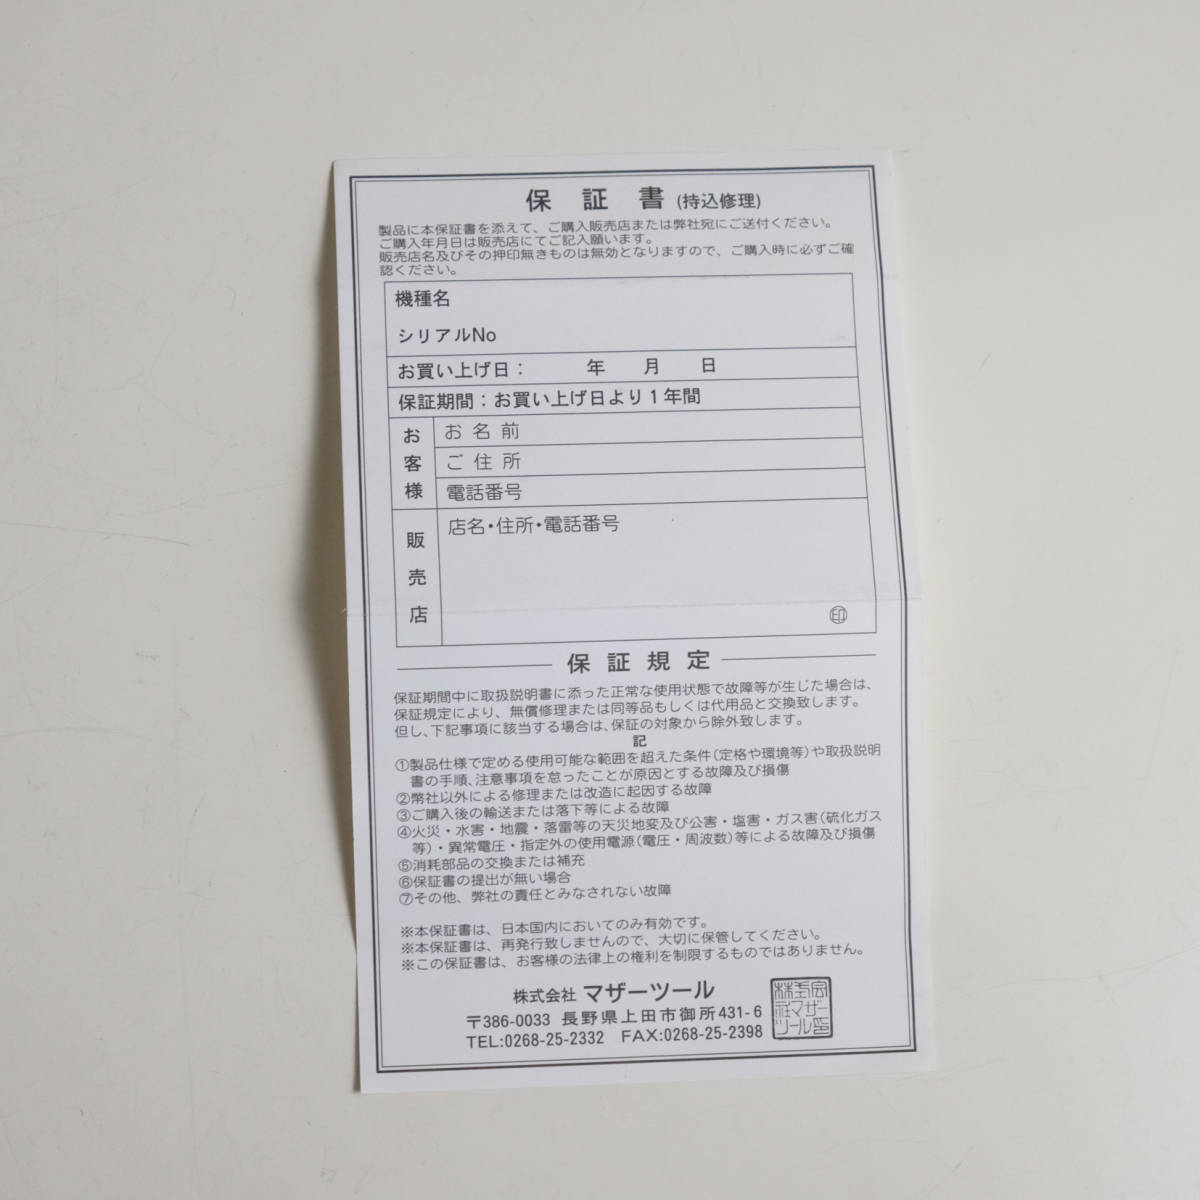 保証書 (持込修理)
製品に本保証書を添えて、ご購入販売店または弊社宛にご送付ください。
ご購入年月日は販売店にてご記入願います。
販売店名及びその押印無きものは無効となりますので、ご購入時に必ずご確
認ください。
機種名
シリアルNo
お買い上げ日： 年 月 日
保証期間：お買い上げ日より1年間
お客様
お名前
ご住所
電話番号
販売店
店名・住所・電話番号
㊞
保証規定
保証期間中に取扱説明書に添った正常な使用状態で故障等が生じた場合は、
保証規定により、無償修理または同等品もしくは代用品と交換致します。
但し、下記事項に該当する場合は、保証の対象から除外致します。
記
①製品仕様で定める使用可能な範囲を超えた条件(定格や環境等)や取扱説明
書の手順、注意事項を怠ったことが原因とする故障及び損傷
②幣社以外による修理または改造に起因する故障
③ご購入後の輸送または落下等による故障
④火災・水害・地震・落雷等の天災地変及び公害・塩害・ガス害(硫化ガス
等)・異常電圧・指定外の使用電源(電圧・周波数)等による故障及び損傷
⑤消耗部品の交換または補充
⑥保証書の提出が無い場合
⑦その他、弊社の責任とみなされない故障
※本保証書は、日本国内においてのみ有効です。
※本保証書は、再発行致しませんので、大切に保管してください。
※この保証書は、お客様の法律上の権利を制限するものではありません。
株式会社 マザーツール
〒386-0033 長野県上田市御所431-6
TEL:0268-25-2332 FAX:0268-25-2398